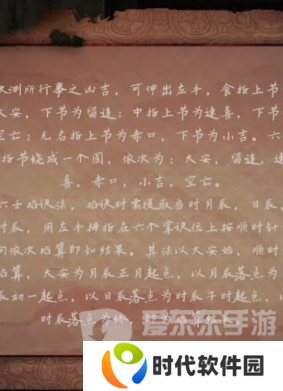 测所行事之凶吉，可伸出左手，食指上节
大安，下节为留连；中指上节为速喜，下节
空亡；无名指上节为赤口，下节为小吉。六
指节绕成一个圆，依次为：大安，留连，速
喜，赤口，小吉，空亡。
六壬掐诀法，掐诀时需提取当时月辰，日辰，
时辰，用左手拇指在六个掌诀位上按顺时针
向依次掐算即知结果。其法以大安始，顺时
掐算，大安为月辰正月起点，以月辰落点为
辰初一起点，以日辰落点为时辰子时起点，以
时辰落点为终
爱乐乐手游
时代软件园